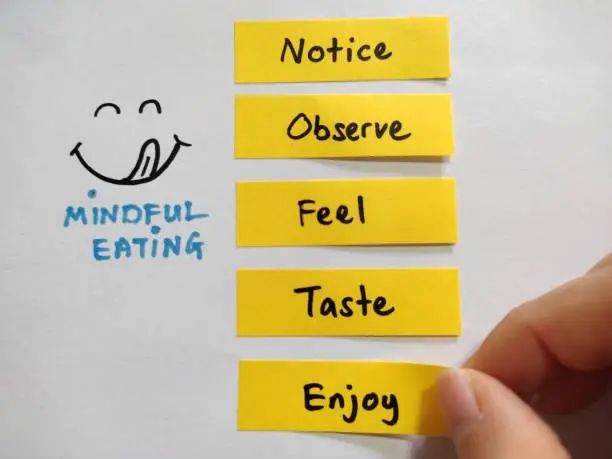 MiNDFUL
EATiNG
Notice
Observe
Feel
Taste
Enjoy